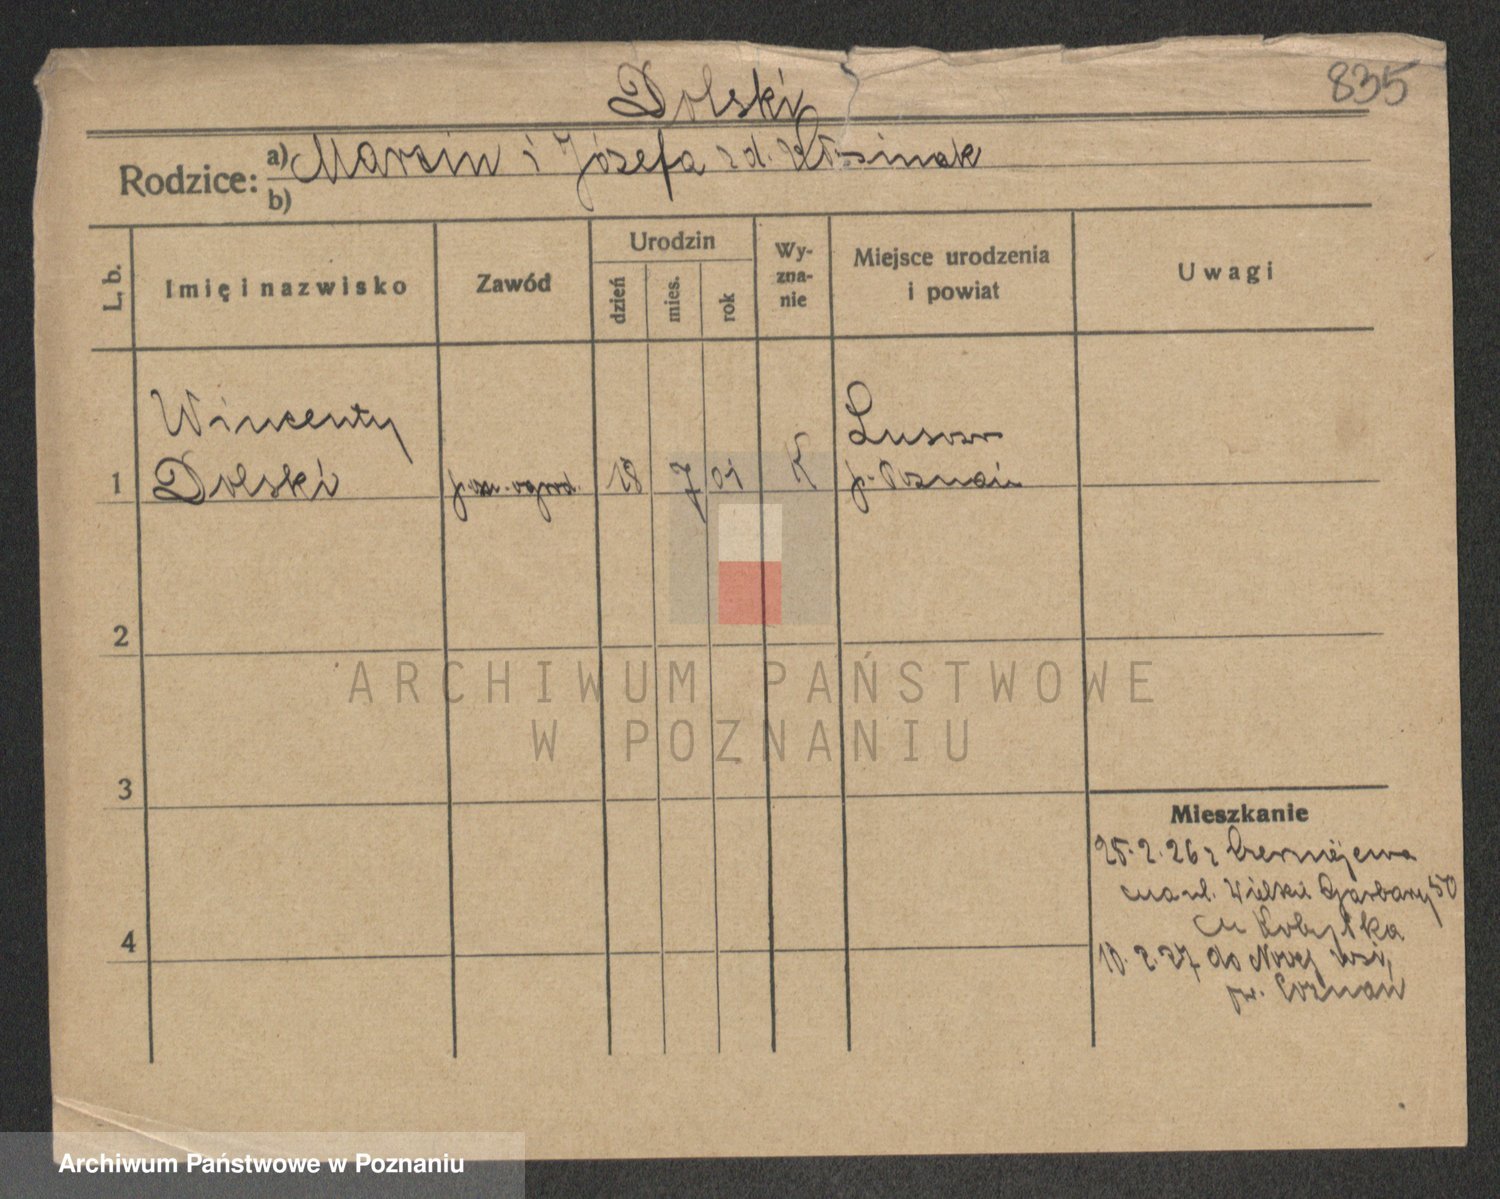 835
Dolski
Rodzice: a) Marcin i Józefa z d.
b)
L. b.
Imię i nazwisko
Zawód
Urodzin
dzień
mies.
rok
Wy-
zna-
nie
Miejsce urodzenia
i powiat
Uwagi
1
Wincenty
Dolski
ogrod.
18
7
01
K
Lusowo
p. Poznań
2
3
4
Mieszkanie
25.2.26 z Czerniejewa
na ul. Wielkie Garbary 50
10.2.27 do Nowej wsi,
pw. Poznań
ARCHIWUM PAŃSTWOWE
W POZNANIU
Archiwum Państwowe w Poznaniu